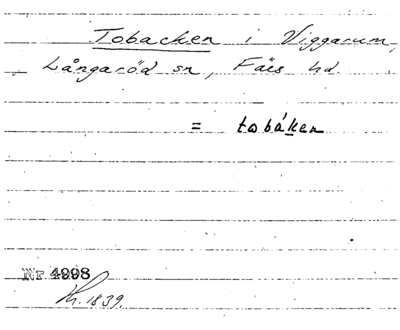 Tobacken i Viggarum,
Långaröd sn, Färs hd.
= tobáken
Nr 4998
Kr. 1839.